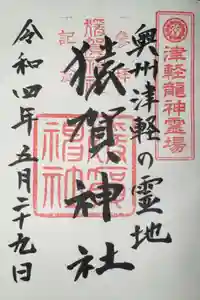 津軽龍神霊場
奥州津軽の霊地
猿賀神社
令和四年五月二十九日